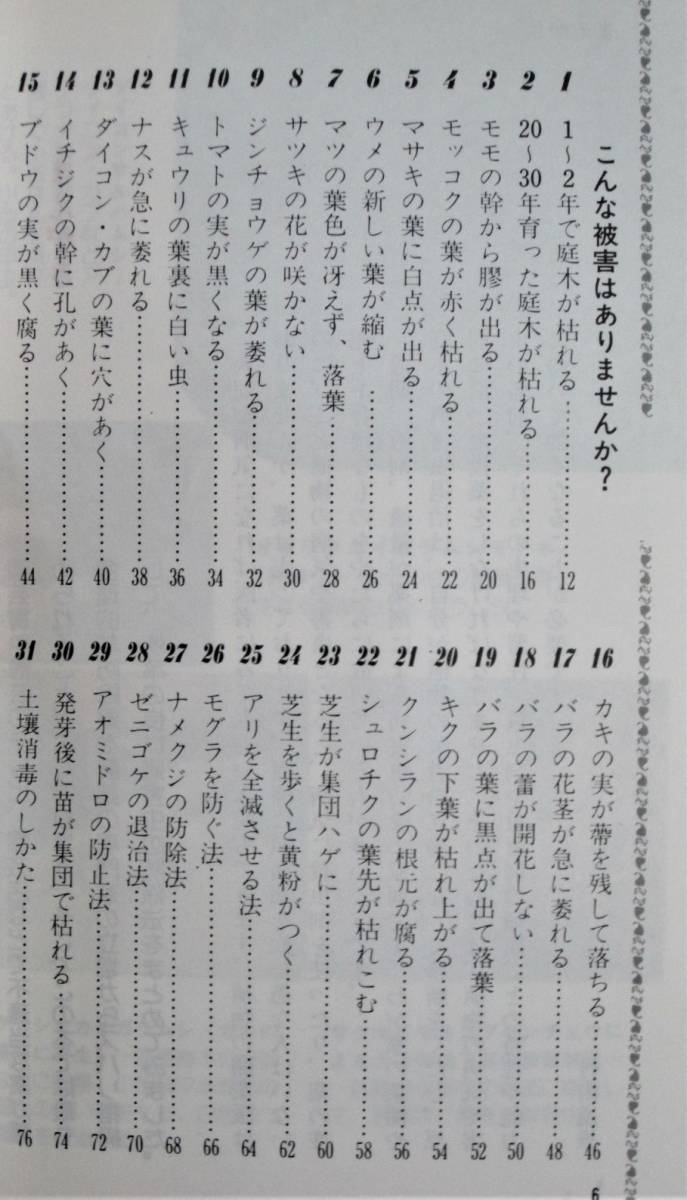 こんな被害はありませんか？
1 1～2年で庭木が枯れる 12
2 20～30年育った庭木が枯れる 16
3 モモの幹から膠が出る 20
4 モッコクの葉が赤く枯れる 22
5 マサキの葉に白点が出る 24
6 ウメの新しい葉が縮む 26
7 マツの葉色が冴えず、落葉 28
8 サツキの花が咲かない 30
9 ジンチョウゲの葉が萎れる 32
10 トマトの実が黒くなる 34
11 キュウリの葉裏に白い虫 36
12 ナスが急に萎れる 38
13 ダイコン・カブの葉に穴があく 40
14 イチジクの幹に孔があく 42
15 ブドウの実が黒く腐る 44
16 カキの実が蔕を残して落ちる 46
17 バラの花茎が急に萎れる 48
18 バラの蕾が開花しない 50
19 バラの葉に黒点が出て落葉 52
20 キクの下葉が枯れ上がる 54
21 クンシランの根元が腐る 56
22 シュロチクの葉先が枯れこむ 58
23 芝生が集団ハゲに 60
24 芝生を歩くと黄粉がつく 62
25 アリを全滅させる法 64
26 モグラを防ぐ法 66
27 ナメクジの防除法 68
28 ゼニゴケの退治法 70
29 アオミドロの防止法 72
30 発芽後に苗が集団で枯れる 74
31 土壌消毒のしかた 76
6